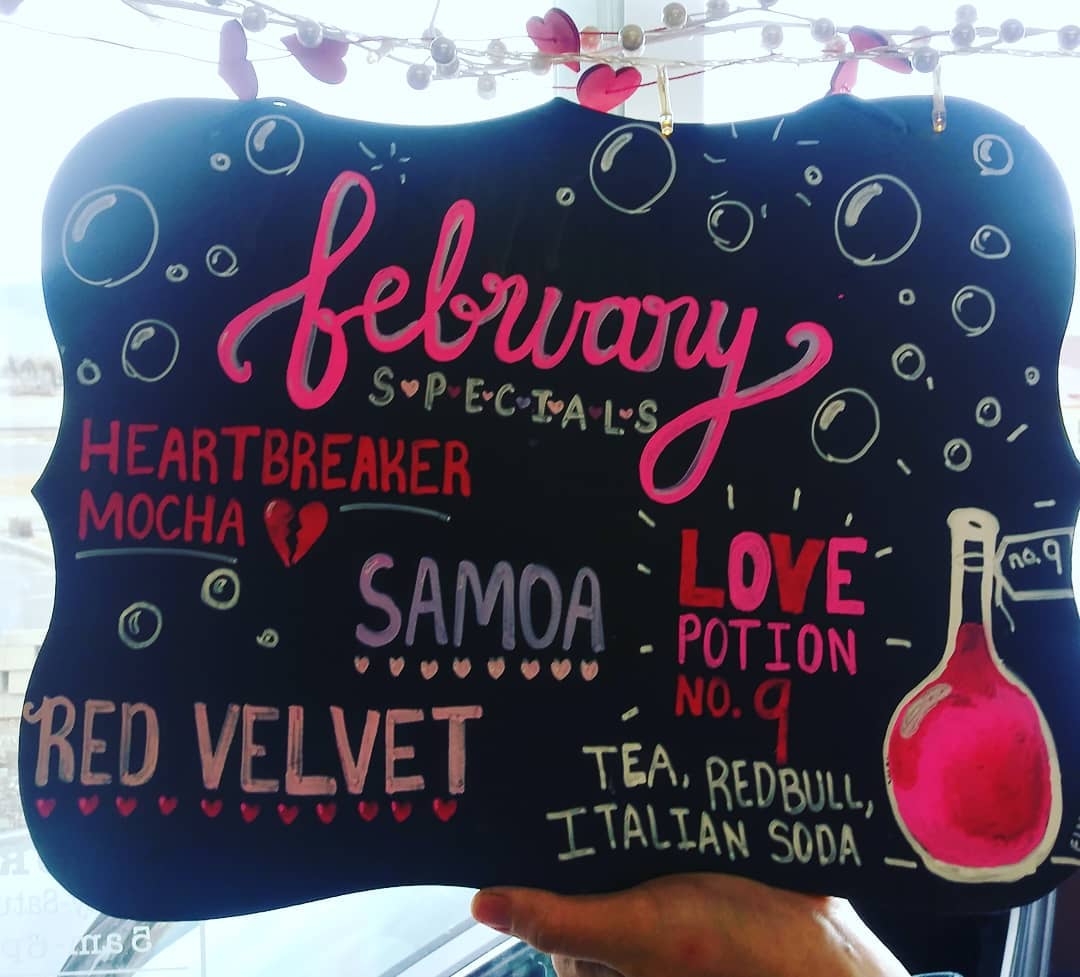 february
SPECIALS
HEARTBREAKER
MOCHA
SAMOA
RED VELVET
LOVE
POTION
NO. 9
TEA, REDBULL,
ITALIAN SODA
no. 9
5am-6p